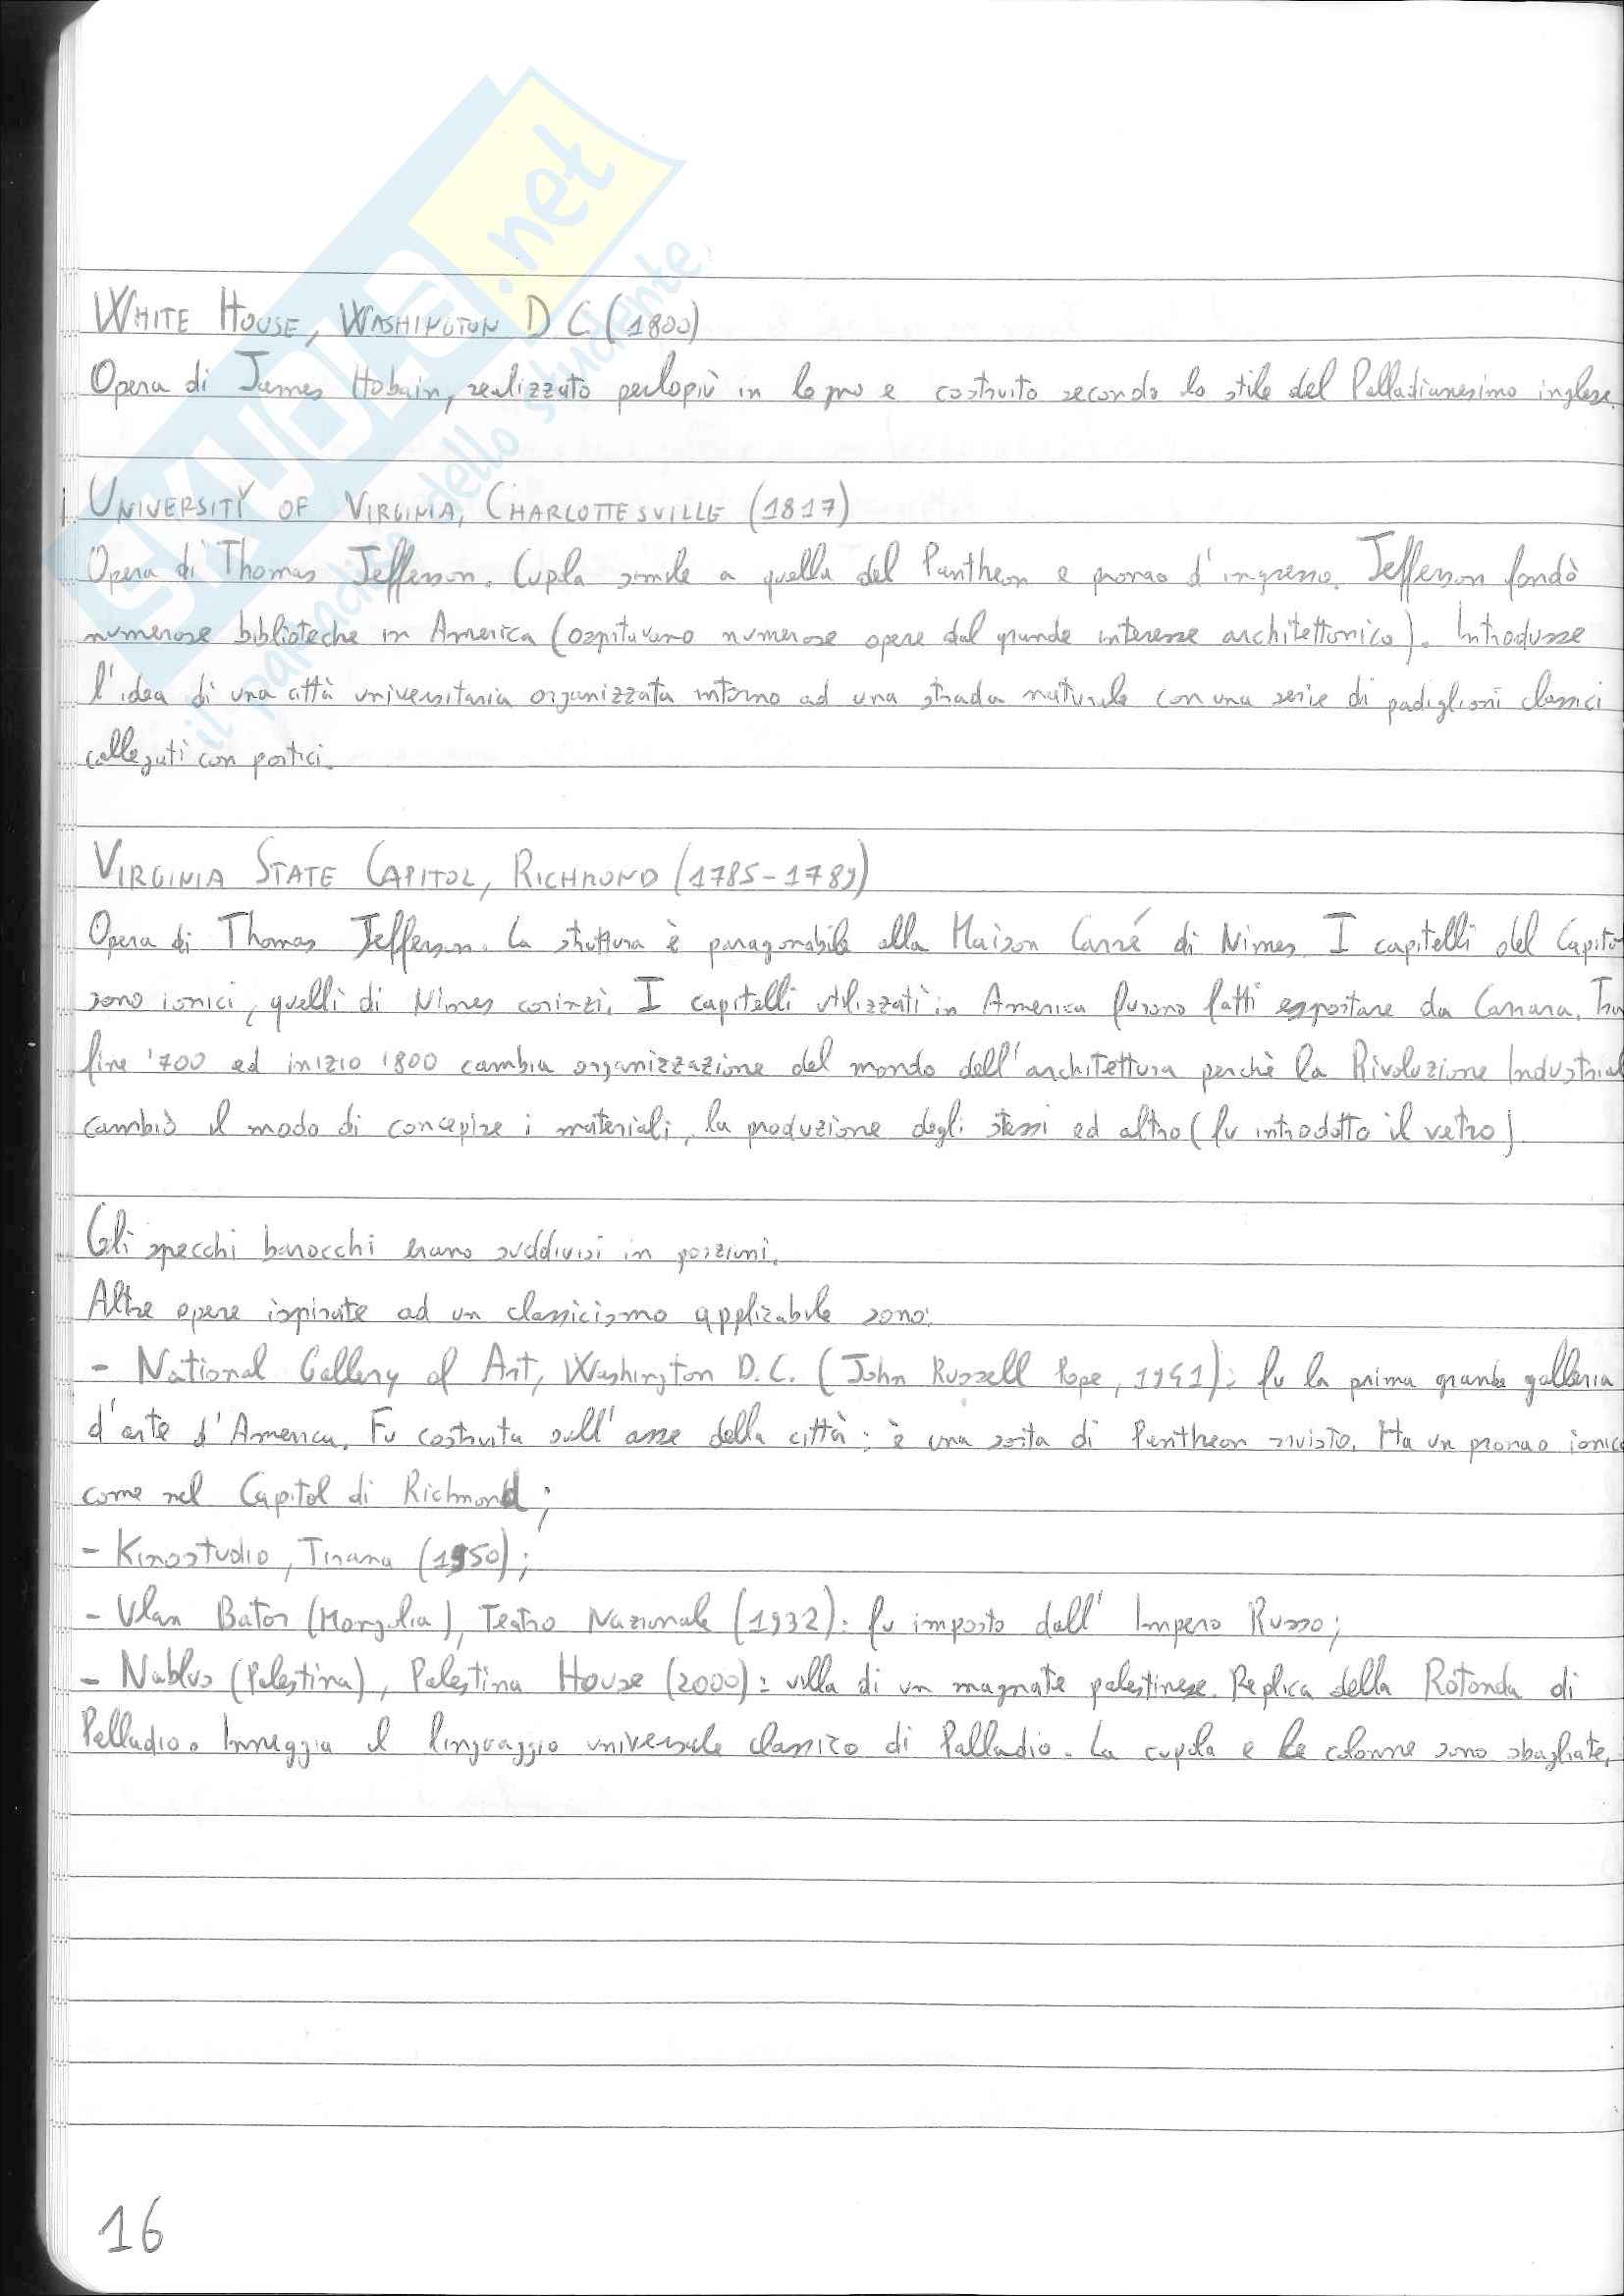 SKUOLA.net
il paradiso dello studente
WHITE HOUSE, WASHINGTON D C. (1800)
Opera di James Hobain, realizzato perlopiù in legno e costruito secondo lo stile del Palladianesimo inglese.
UNIVERSITY OF VIRGINIA, CHARLOTTESVILLE (1817)
Opera di Thomas Jefferson. Cupla simile a quella del Pantheon e pronao d'ingresso. Jefferson fondò
numerose biblioteche in America (ospitavano numerose opere dal grande interesse architettonico). Introdusse
l'idea di una città universitaria organizzata intorno ad una strada naturale con una serie di padiglioni classici
collegati con portici.
VIRGINIA STATE CAPITOL, RICHMOND (1785-1789)
Opera di Thomas Jefferson. La struttura è paragonabile alla Maison Carré di Nimes. I capitelli del Capito
sono ionici, quelli di Nimes corinzi. I capitelli utilizzati in America furono fatti esportare da Carrara. Tra
fine '700 ed inizio 1800 cambia organizzazione del mondo dell'architettura perchè la Rivoluzione Industrial
cambiò il modo di concepire i materiali, la produzione degli stessi ed altro (fu introdotto il vetro).
Gli specchi barocchi erano suddivisi in porzioni.
Altre opere ispirate ad un classicismo applicabile sono:
- National Gallery of Art, Washington D.C. (John Russell Pope, 1941): fu la prima grande galleria
d'arte d'America. Fu costruita sull'asse della città: è una sorta di Pantheon rivisto. Ha un pronao ionico
come nel Capitol di Richmond;
- Kinostudio, Tirana (1950);
- Ulan Bator (Mongolia), Teatro Nazionale (1932): fu imposto dall'Impero Russo;
- Nablus (Palestina), Palestina House (2000): villa di un magnate palestinese. Replica della Rotonda di
Palladio. Inneggia il linguaggio universale classico di Palladio. La cupola e le colonne sono sbagliate.
16